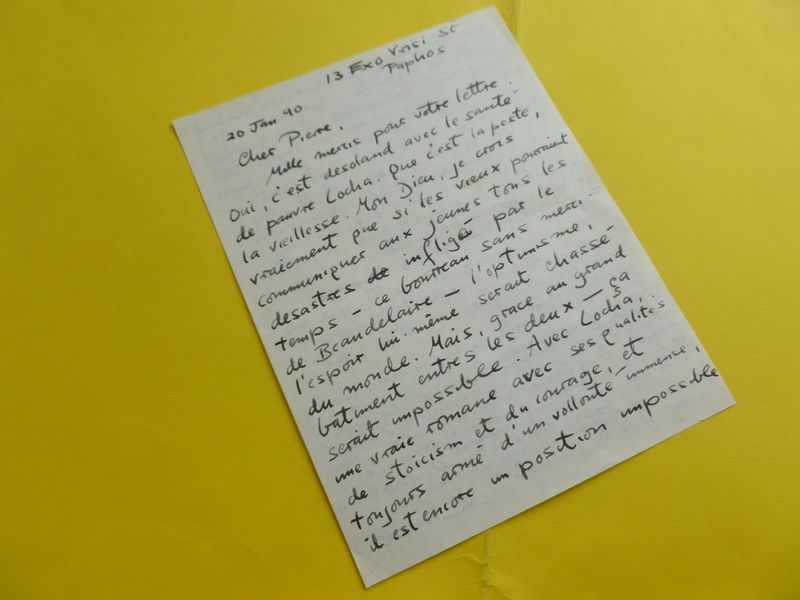 13 Exo Vrisi St
Paphos
20 Jan 90
Cher Pierre,
Mille mercis pour votre lettre.
Oui, c'est desoland avec le santé-
de pauvre Locha. Que c'est la peste,
la vieillesse. Mon Dieu, je crois
vraiment que si les vieux pourraient
communiquer aux jeunes tous les
desastres infligé par le
temps – ce bourreau sans merci...
de Beaudelaire – l'optimisme,
l'espoir lui-même serait chassé
du monde. Mais, grace au grand
batiment entres les deux – ça
serait impossible. Avec Locha,
une vraie romane avec ses qualités
de stoicism et du courage, et
toujours armé d'un vollonté immense,
il est encore un position impossible